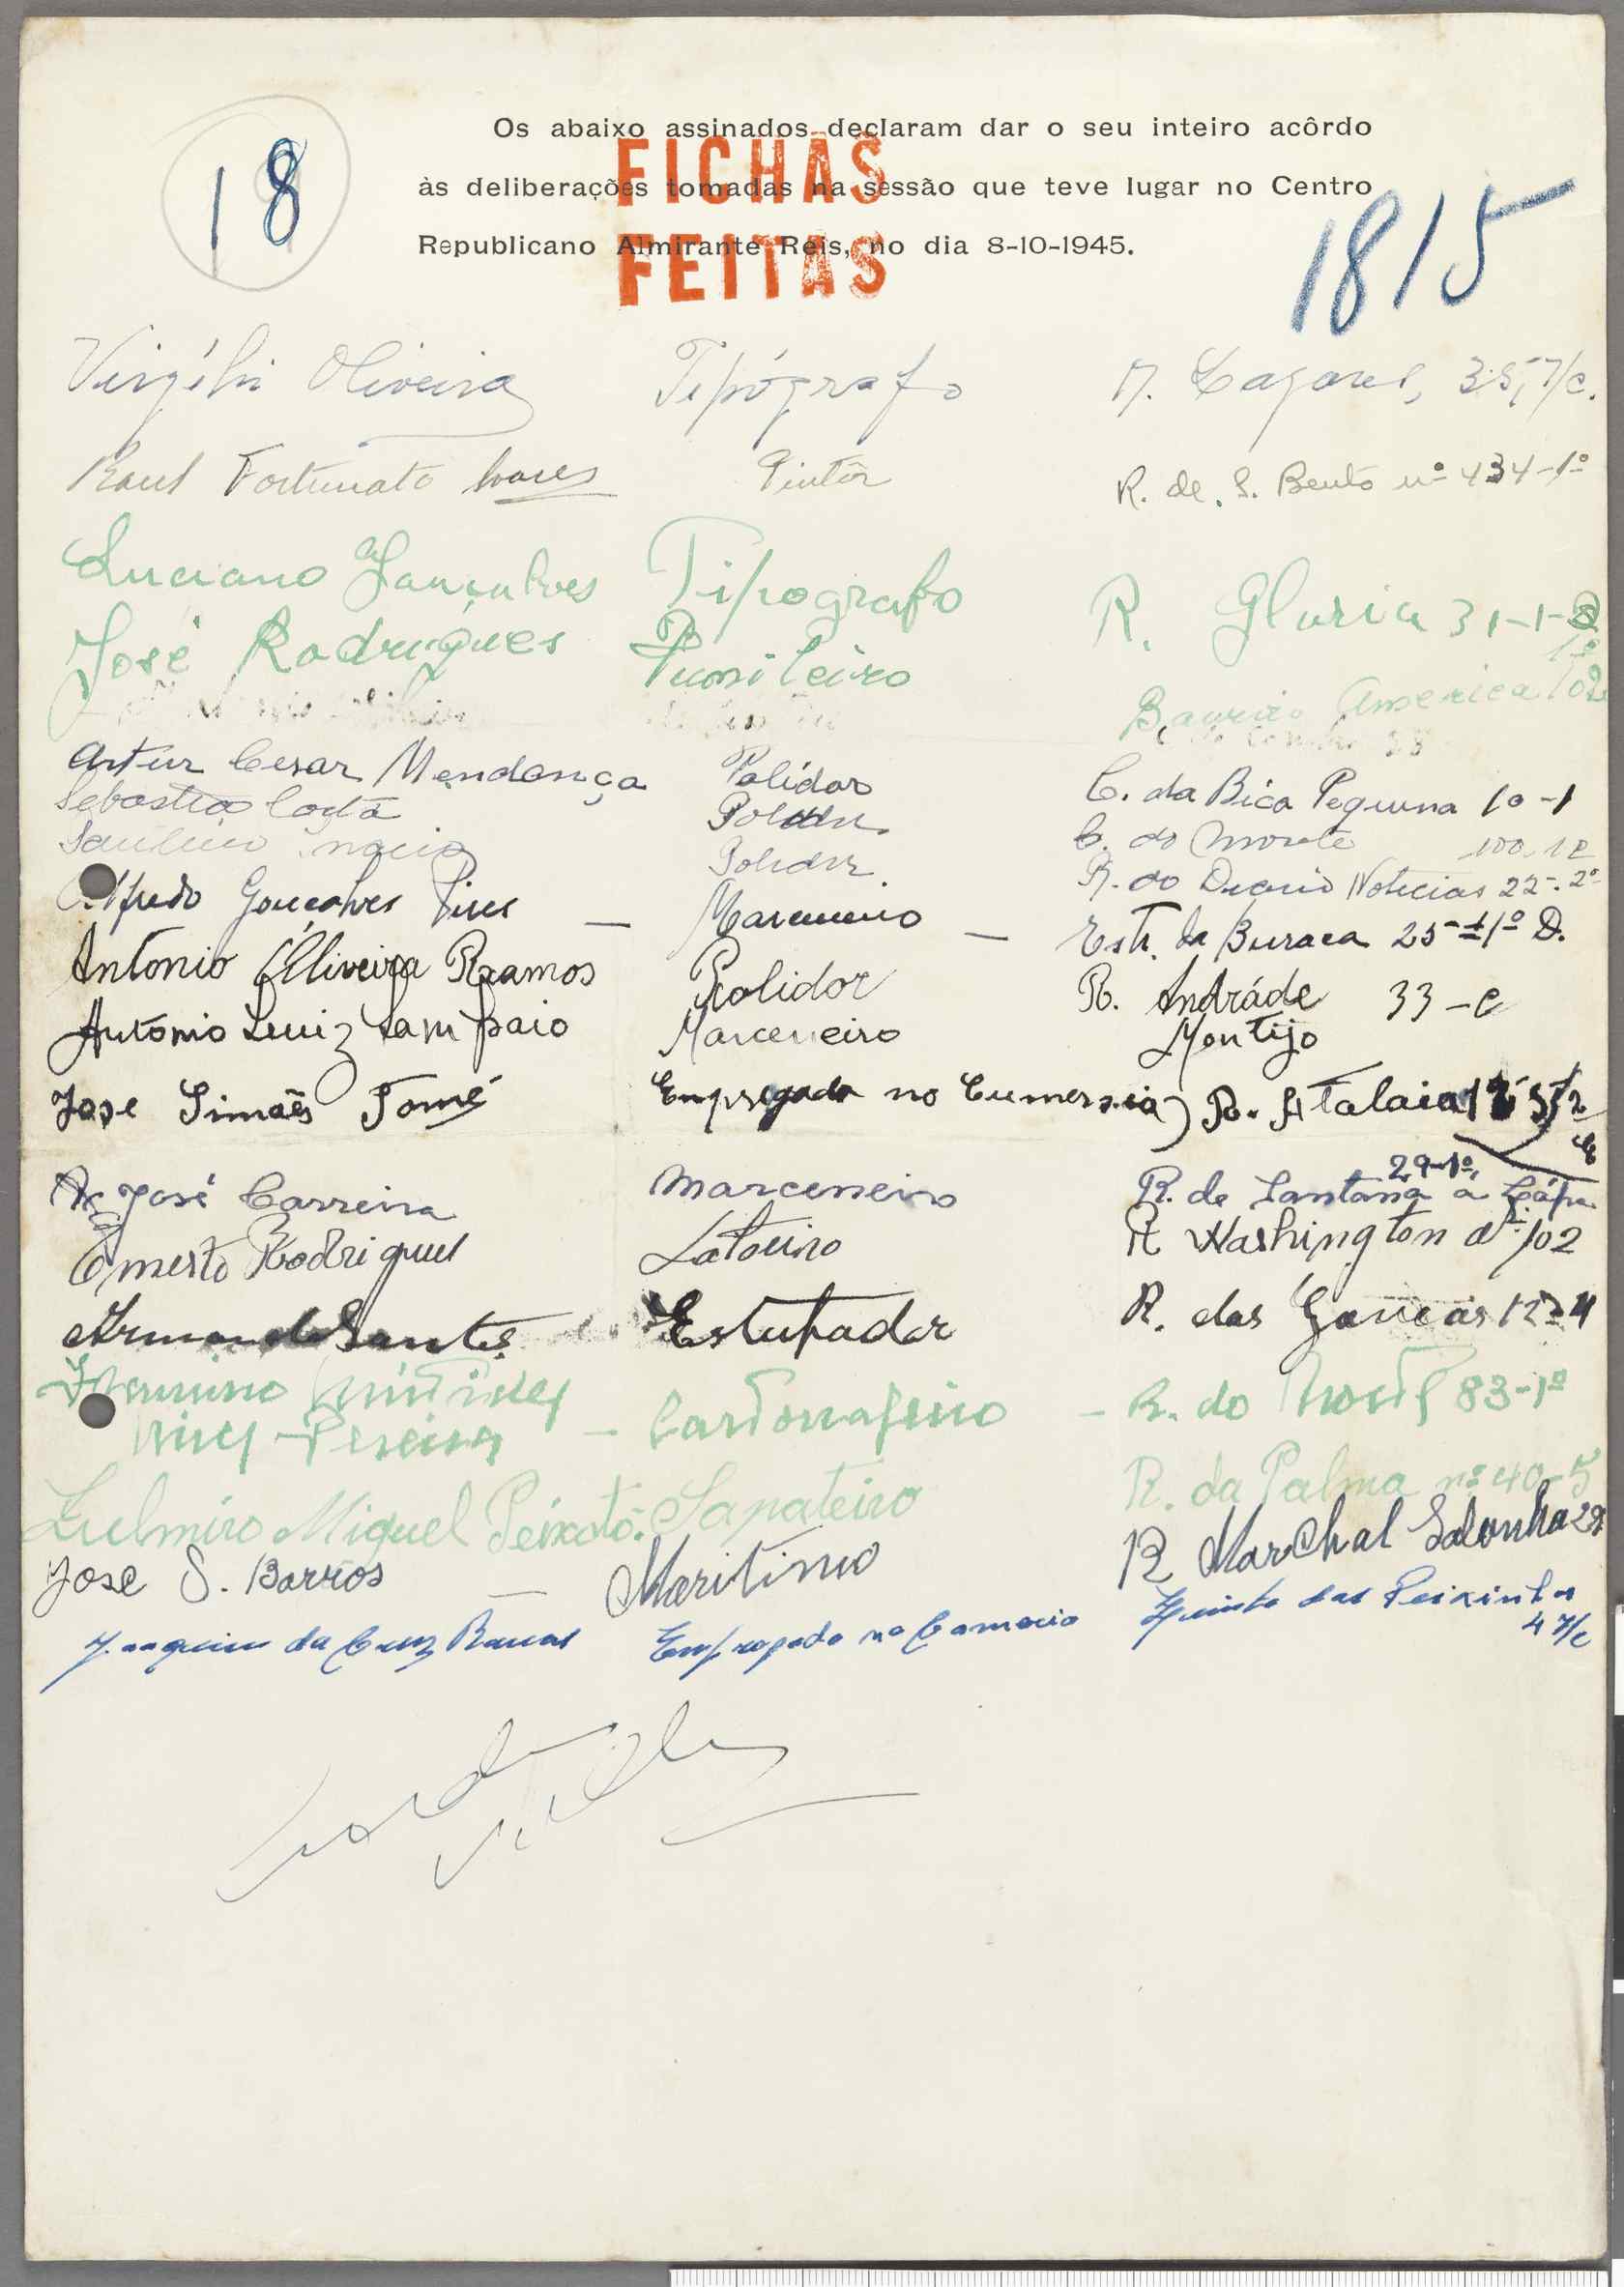 18
Os abaixo assinados declaram dar o seu inteiro acôrdo
às deliberações tomadas na sessão que teve lugar no Centro
Republicano Almirante Reis, no dia 8-10-1945.
FICHAS
FEITAS
1815
Virgílio Oliveira Tipógrafo 35, r/c.
Raul Fortunato Pintôr R. de S. Bento nº 434-1º
Luciano Gonçalves Tipografo R. Gloria 31-1-D
José Rodrigues America 102
Artur Cesar Mendonça Polidor C. da Bica Pequena 10-1
Sebastião Costa Polidor C. do Monte 100
Polidor R. do Diario Noticias 22-2º
Alfredo Gonçalves Pires — Marceneiro — Estr. da Buraca 25 1º D.
Antonio Oliveira Ramos Polidor R. Andráde 33-C
Antonio Luiz Sampaio Marceneiro Montijo
Jose Simões Tomé Empregado no Cumersia R. Atalaia
José Carreira Marceneiro R. de Santana a Lápa 29-1º
Ernesto Rodrigues Latoeiro R Washington 102
Armando Santos Estufador R. das Gaveas 12-4
Pereira — Cartonageiro — R. do Norte 83-1º
Zulmiro Miguel Peixoto. Sapateiro R. da Palma nº 40-5
Jose S. Barros — Maritimo R Marchal Saldanha 28
Joaquim da Cruz Empregado no Comercio Quinta dos Peixinhos
4 r/c